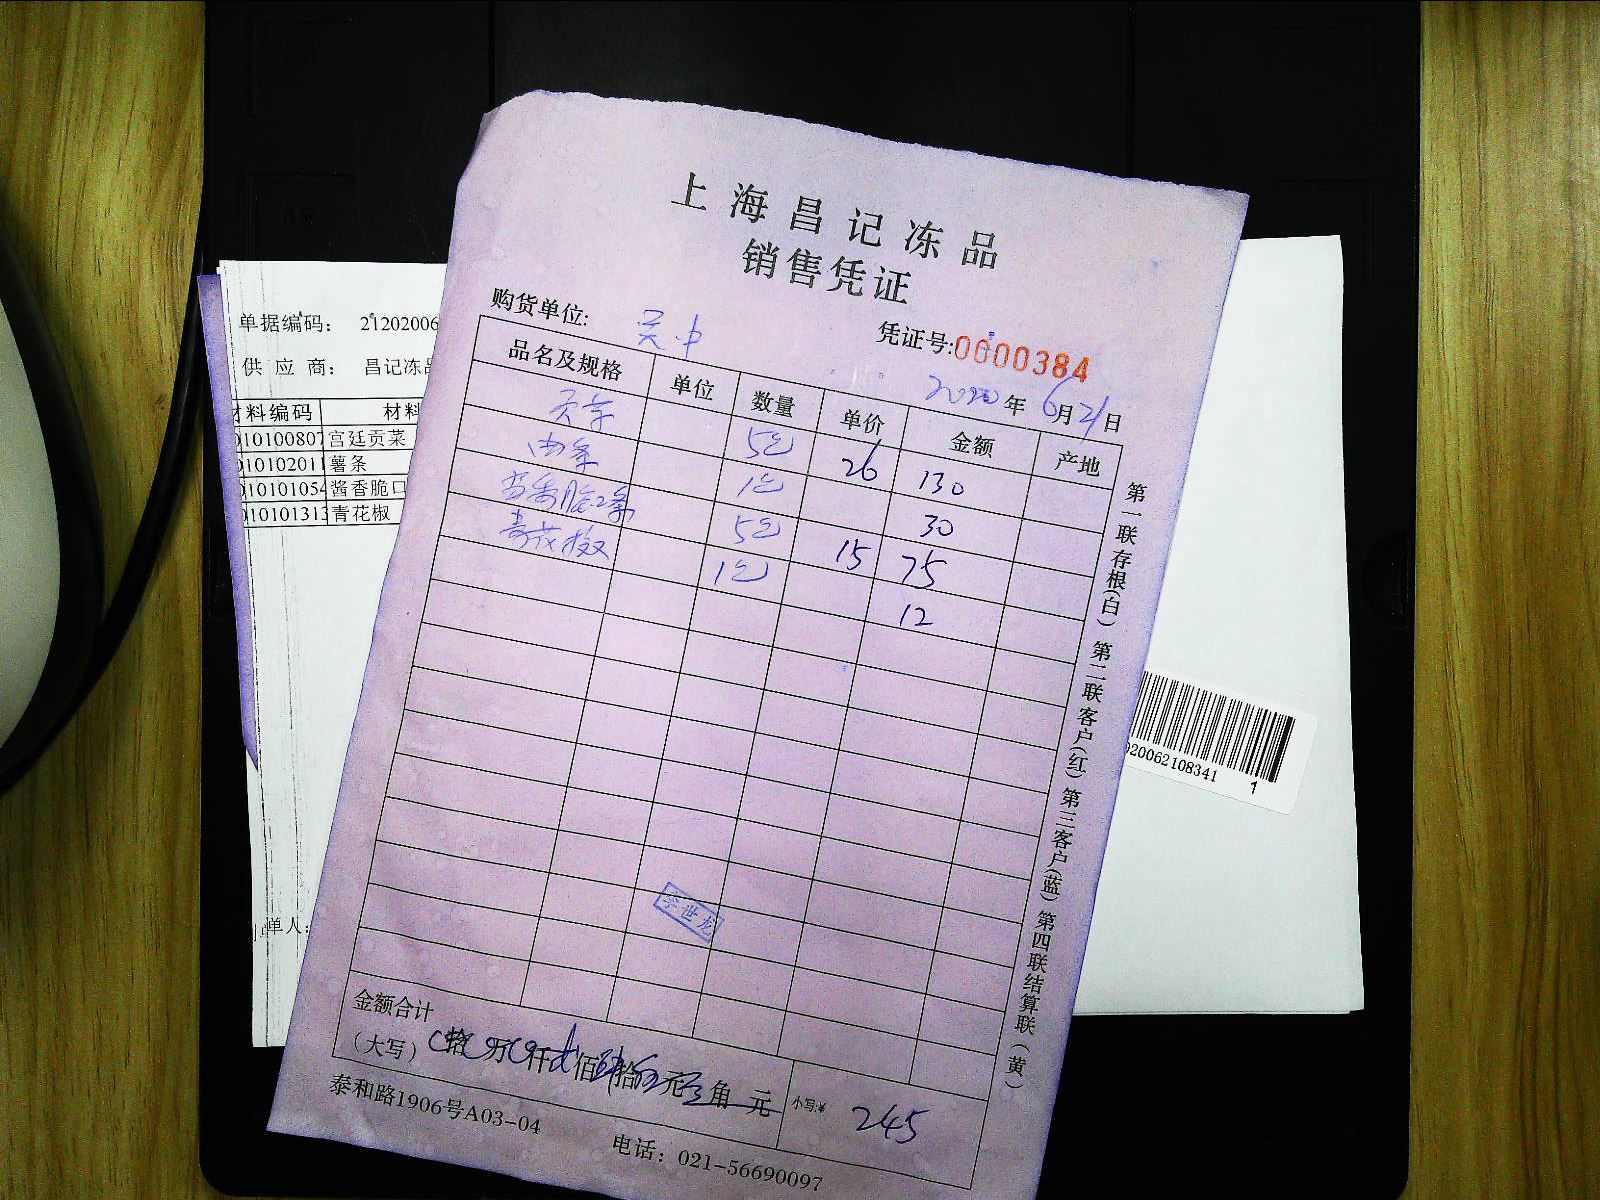 上海昌记冻品
销售凭证
购货单位: 吴中
凭证号:0000384
2020年6月21日
品名及规格 单位 数量 单价 金额 产地
5包 26 130
1包 30
5包 15 75
青花椒 1包 12
李世龙
金额合计
(大写) 0拾0万0仟贰佰肆拾伍元 角 元
小写:¥ 245
泰和路1906号A03-04
电话：021-56690097
第一联存根(白) 第二联客户(红) 第三客户(蓝) 第四联结算联(黄)
单据编码： 21202006
供应商： 昌记冻品
材料编码 材料
010100807 宫廷贡菜
01010201 薯条
010101054 酱香脆口
01010131 青花椒
单人:
20062108341
1